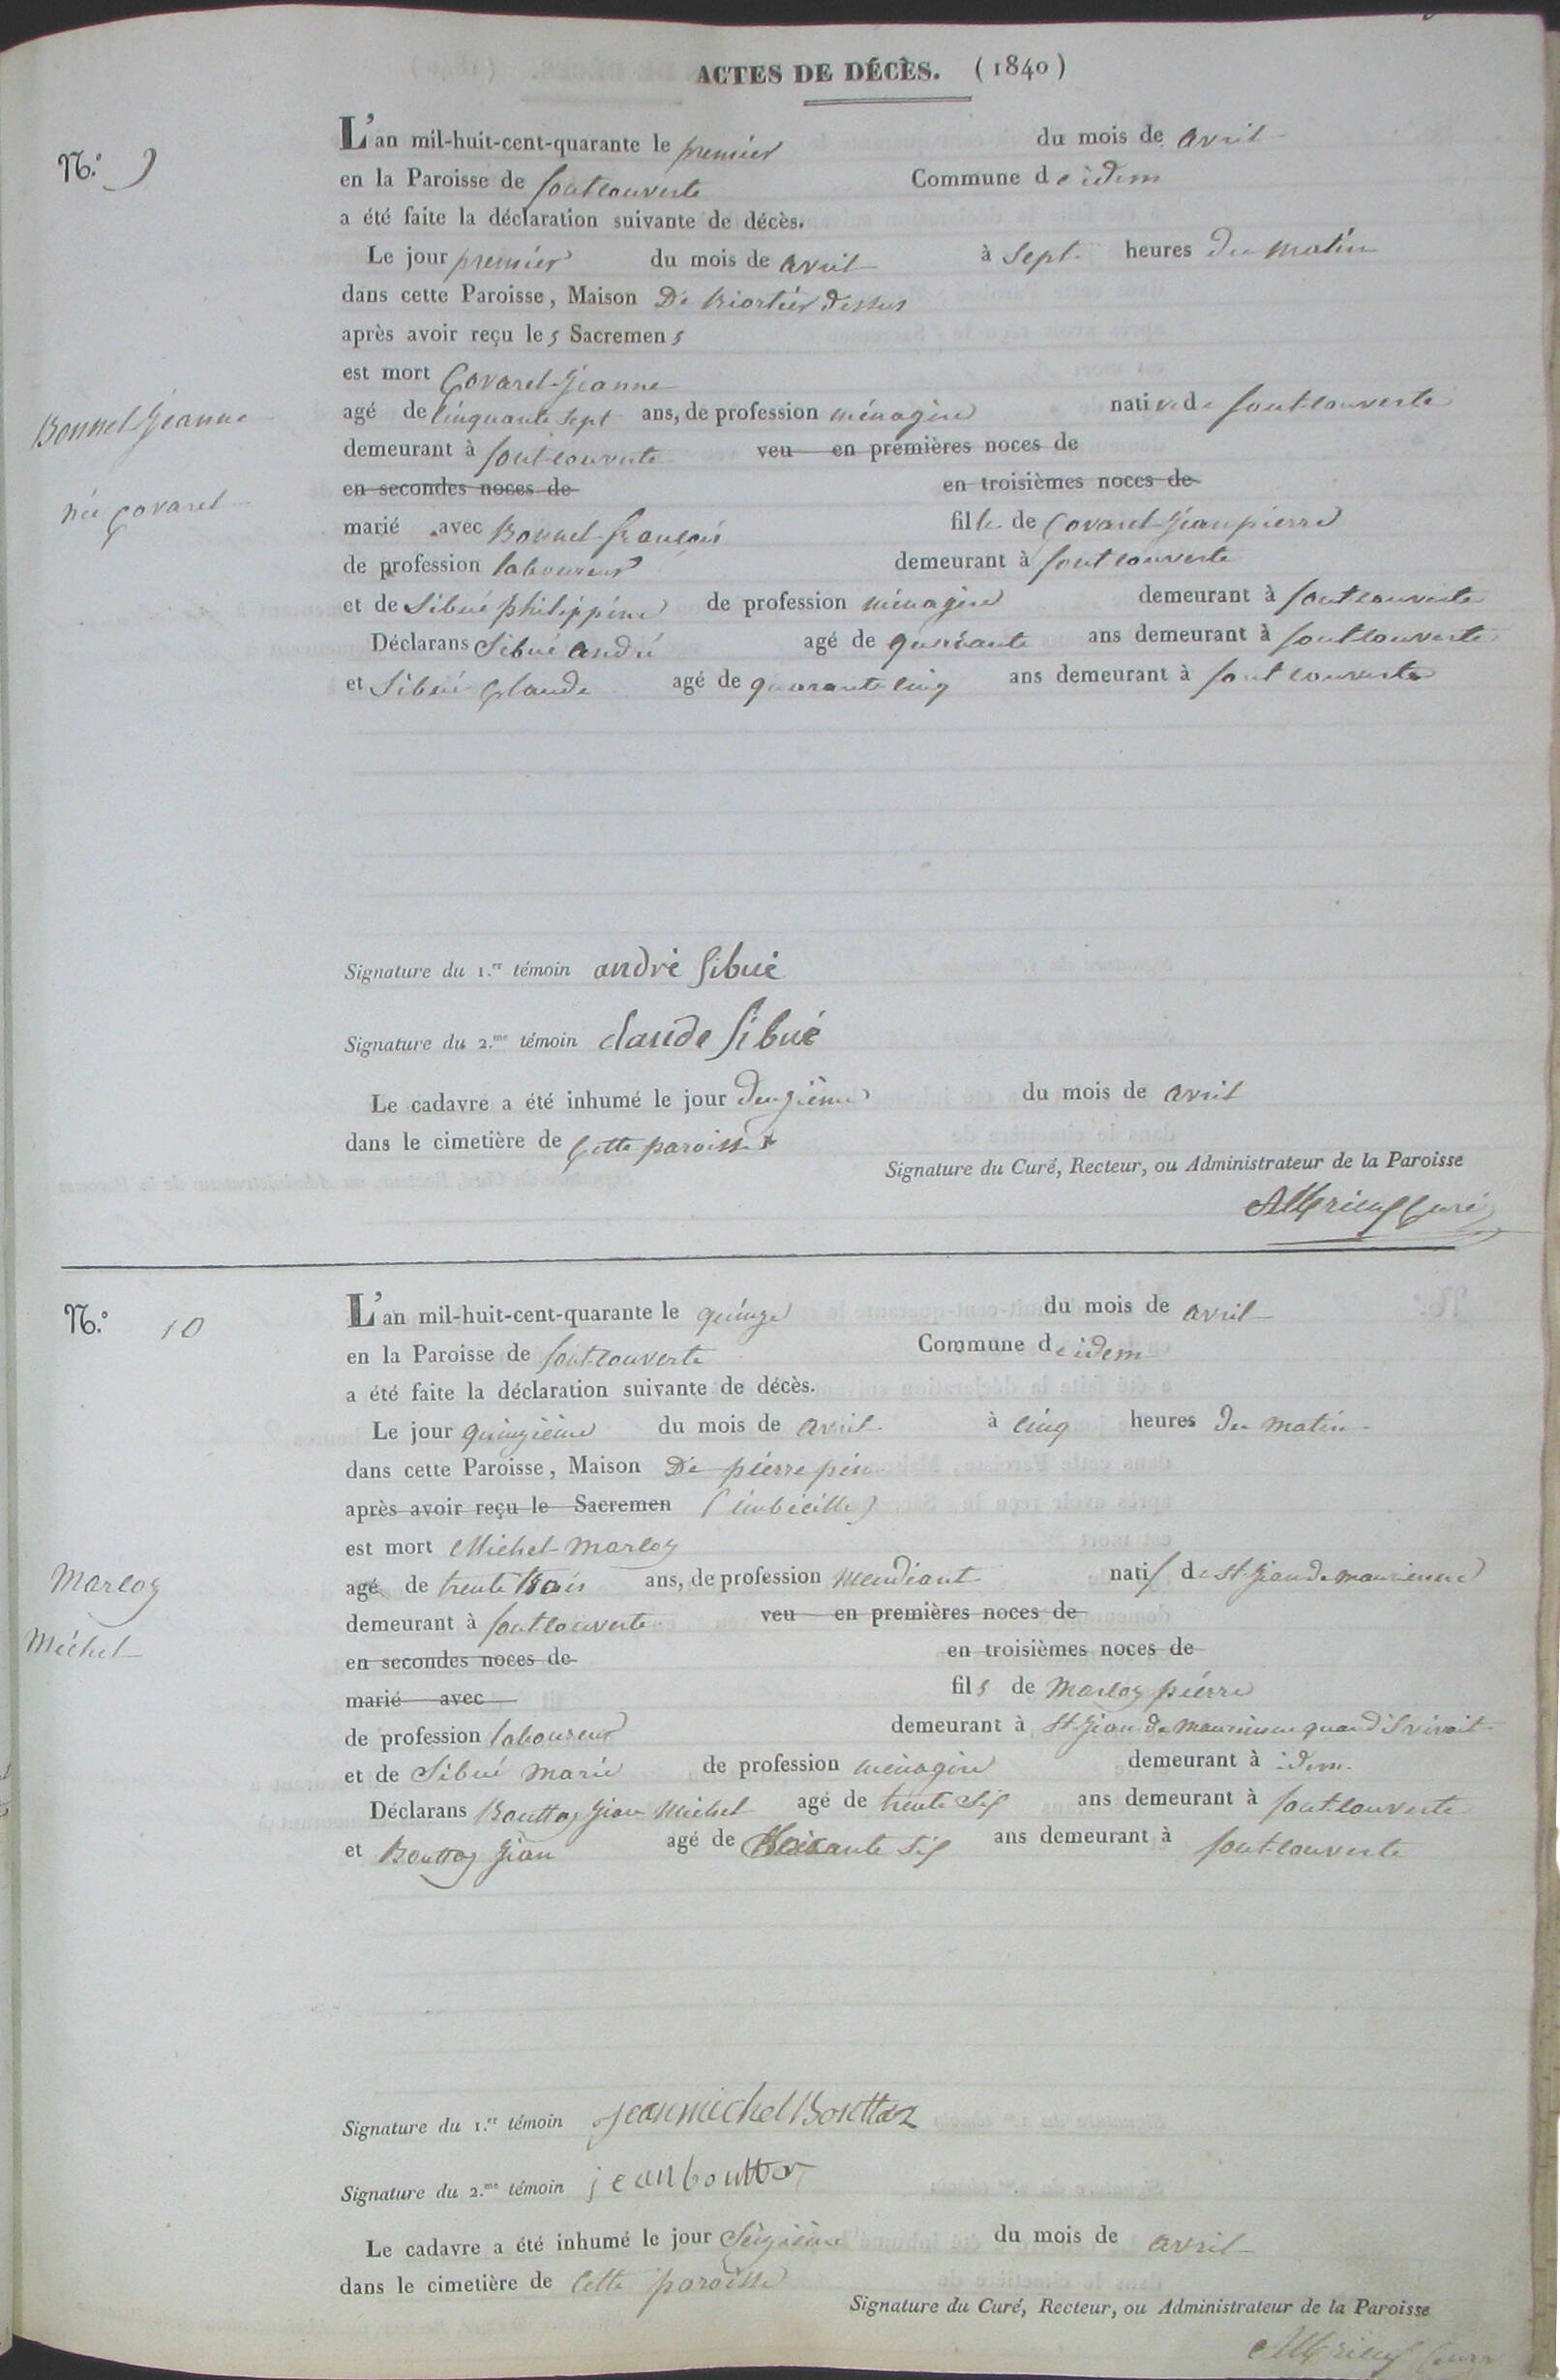 ACTES DE DÉCÈS. (1840)
N.º 9
L'an mil-huit-cent-quarante le premier du mois de avril
en la Paroisse de fontcouverte Commune de idem
a été faite la déclaration suivante de décès.
Le jour premier du mois de avril à sept heures du matin
dans cette Paroisse, Maison De dessus
après avoir reçu les Sacremens
est mort Covarel Jeanne
Bonnel Jeanne
née Covarel
agé de cinquante sept ans, de profession ménagère native de fontcouverte
demeurant à fontcouverte veu en premières noces de
en secondes noces de en troisièmes noces de
marié avec Bonnel françois fille de Covarel Jean pierre
de profession laboureur demeurant à fontcouverte
et de Sibué philippine de profession ménagère demeurant à fontcouverte
Déclarans Sibué andré agé de quarante ans demeurant à fontcouverte
et Sibué Claude agé de quarante cinq ans demeurant à fontcouverte
Signature du 1.er témoin andré Sibué
Signature du 2.me témoin claude Sibué
Le cadavre a été inhumé le jour deuzième du mois de avril
dans le cimetière de Cette paroisse
Signature du Curé, Recteur, ou Administrateur de la Paroisse
Curé
N.º 10
L'an mil-huit-cent-quarante le quinze du mois de avril
en la Paroisse de fontcouverte Commune de idem
a été faite la déclaration suivante de décès.
Le jour quinzième du mois de avril à cinq heures du matin
dans cette Paroisse, Maison De pierre pin
après avoir reçu le Sacremen (imbécille)
est mort Michel Marcoz
Marcoz
Michel
agé de trente trois ans, de profession mendiant natif de St Jean de maurienne
demeurant à fontcouverte veu en premières noces de
en secondes noces de en troisièmes noces de
marié avec fils de Marcoz pierre
de profession laboureur demeurant à St Jean de Maurienne quand il vivoit
et de Sibué Marie de profession ménagère demeurant à idem
Déclarans Bouttaz Jean Michel agé de trente six ans demeurant à fontcouverte
et Bouttaz Jean agé de soixante six ans demeurant à fontcouverte
Signature du 1.er témoin jeanmichel Bouttaz
Signature du 2.me témoin jean bouttaz
Le cadavre a été inhumé le jour seizième du mois de avril
dans le cimetière de cette paroisse
Signature du Curé, Recteur, ou Administrateur de la Paroisse